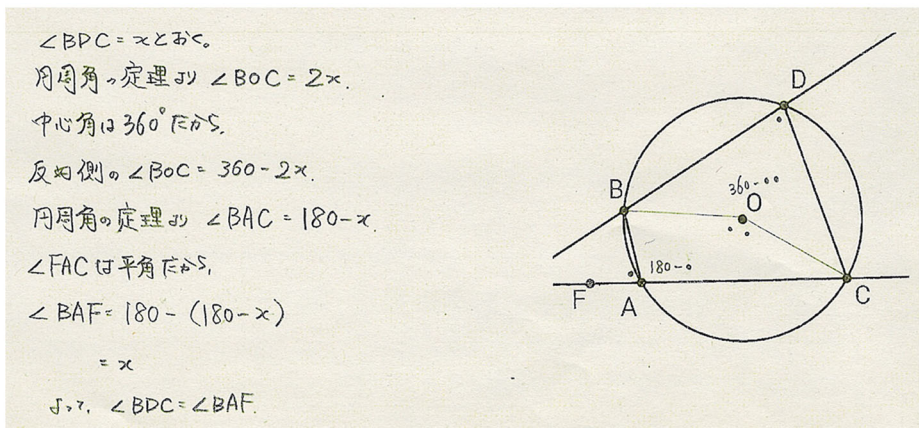 ∠BDC=xとおく。
円周角の定理より ∠BOC=2x.
中心角は360°だから,
反対側の∠BOC=360-2x.
円周角の定理より ∠BAC=180-x.
∠FACは平角だから,
∠BAF=180-(180-x)
=x
よって, ∠BDC=∠BAF.
D
B
360-••
O
180-•
F
A
C